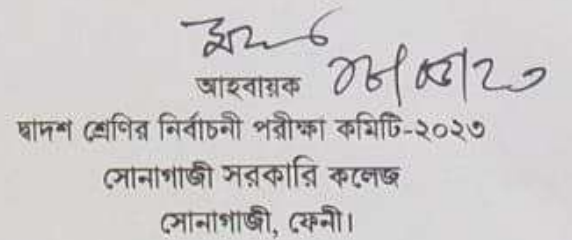 আহবায়ক
দ্বাদশ শ্রেণির নির্বাচনী পরীক্ষা কমিটি-২০২৩
সোনাগাজী সরকারি কলেজ
সোনাগাজী, ফেনী।